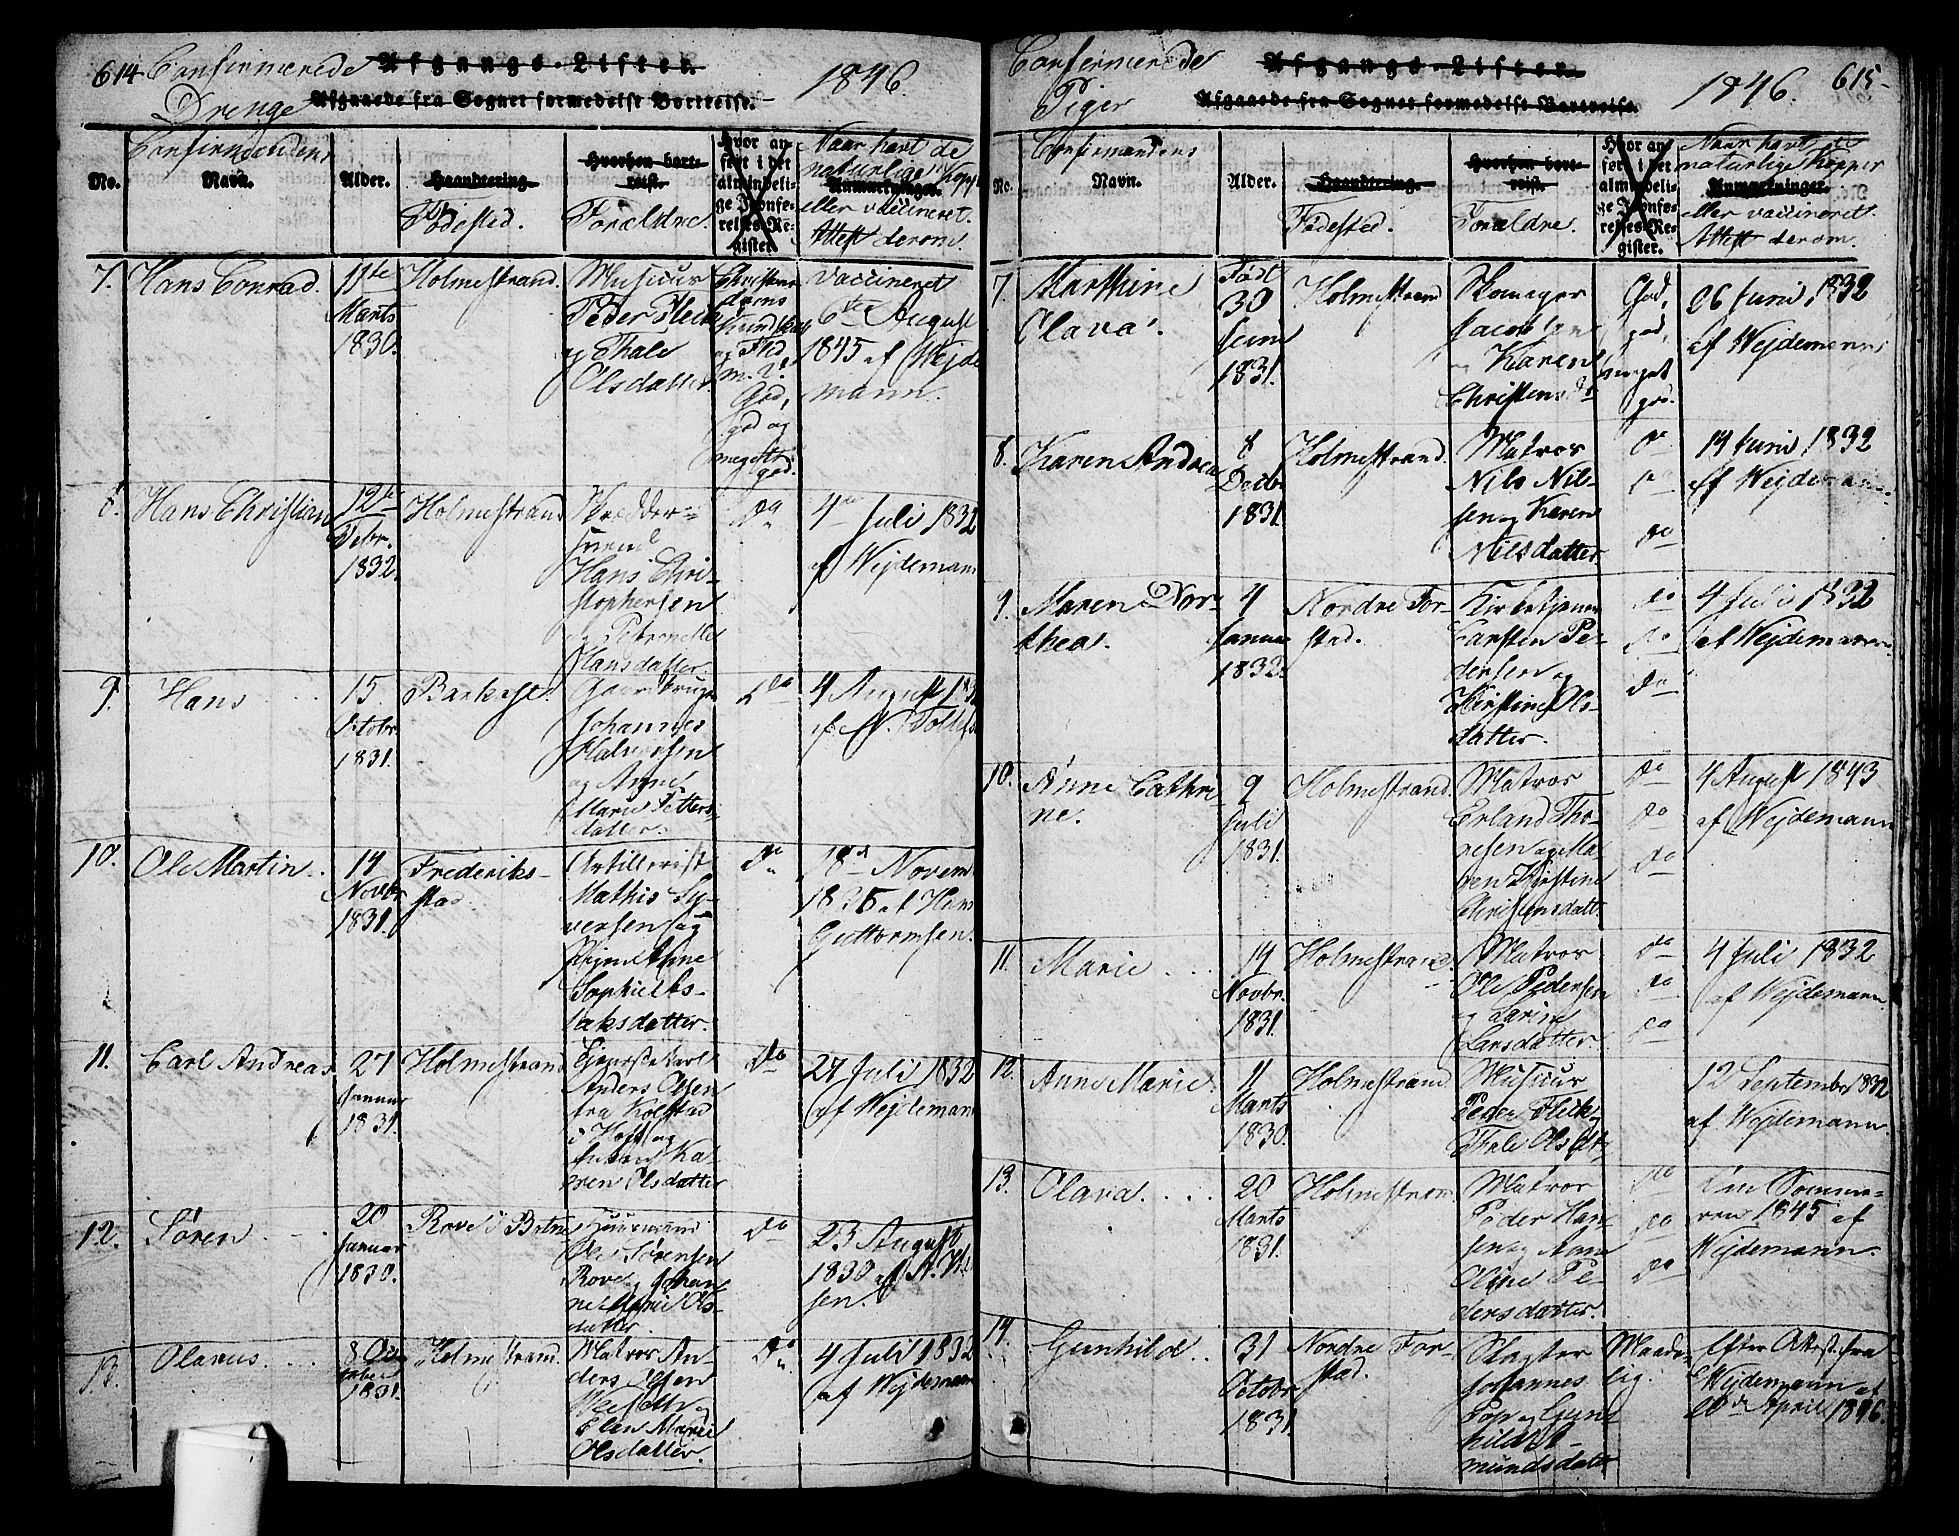 614 Confirmerede Afgangs-Lister. 1846.
Drenge Afgaaede fra Sognet formedelst Bortreise.
Confirmandens
No. Navn. Alder. Haandtering. Fødested. Hvorhen bortreist. Forældre. Hvor anført i det almindelige Jevnførelses-Register. Anmærkninger. Naar havt de naturlige Kopper eller vaccineret. Attest derom.
7. Hans Conrad. 11te Marts 1830. Holmestrand. Musicus
Peder Fleck
og Thale
Olsdatter
Christendoms Kundskab og Flid
God, god og meget god.
vaccineret
6te August
1845 af Wejde
mann.
8. Hans Christian 12te Febr. 1832. Holmestrand Skrædder-
svend
Hans Chri-
stophersen
og Petronelle
Hansdatter
do 4de Juli 1832
af Wejdemann
9. Hans 15 Octobr 1831. Johannes
Halvorsen
og Anne
Marie Petters
datter.
do 4 August
af
10. Ole Martin 14 Novbr 1831. Frederiks-
stad. Artillerist
Mathis Sy-
versen og
Anne
Sophie
Isaksdatter.
do 18de Novem
1835 af Hans
Guttormsen.
11. Carl Andreas 27 Januar 1831. Holmestrand Tjenestekarl
Anders Olsen
fra Kolstad
i Hoff og
Ka-
ren Olsdatter
do 27 Juli 1832
af Wejdemann
12. Søren 20 Januar 1830. Rove i Botne Huusmand
Ole Sørensen
Rove og Johan
ne Marie Ols-
datter.
do 23 August
1830 af
sen.
13. Olavus 8 October 1831. Holmestrand. Matros An-
ders Olsen
og
Elen Marie
Olsdatter.
do 4 Juli 1832
af Wejdemann
Confirmerede Afgangs-Lister. 1846. 615
Piger Afgaaede fra Sognet formedelst Bortreise.
Confirmandens
No. Navn. Alder. Haandtering. Fødested. Hvorhen bortreist. Forældre. Hvor anført i det almindelige Jevnførelses-Register. Anmærkninger. Naar havt de naturlige Kopper eller vaccineret. Attest derom.
7. Marthine
Olava. Født 30 Juni 1831. Holmestrand Skomager
Jacobsen
og Karen
Christensdr
God,
god,
meget
god.
26 Juni, 1832
af Wejdemann
8. Karen Andrea 8 Decbr 1831. Holmestrand. Matros
Nils Nil-
sen og Karen
Nilsdatter
do
do
do
14 Juni, 1832
af Wejdemann
9. Maren Dor-
thea. 4 Januar 1832. Nordre For-
stad. Kirketjener
Carsten Pe-
dersen og
Kirstine Ols-
datter.
do
do
do
4 Juli 1832
af Wejdemann.
10. Anne Cathri-
ne. 9 Juli 1831. Holmestrand. Matros
Erland Tho-
resen og Ma-
ren Kirstine
Christensdatt.
do
do
do
4 August 1843
af Wejdemann
11. Marie 14 Novbr. 1831. Holmestrand. Matros
Ole Pedersen
og Karine
Larsdatter.
do
do
do
4 Juli 1832
af Wejdemann
12. Anne Marie. 11 Marts 1830. Holmestrand. Musicus
Peder Fleck
Thale Olsdtr
12 September 1832
af Wejdemann.
13. Olava. 20 Marts 1831. Holmestrand Matros
Peder Han-
sen og Anne
Oline Pe-
dersdatter.
do
do
do
Om Somme-
ren 1845 af
Wejdemann.
14. Gunhild 31 Octobr 1831. Nordre For-
stad. Slagter
Johannes
og Gun
hild
mundsdatter
Maade-
lig.
Efter Attest fra
Wejdemann af
20de April 1846.